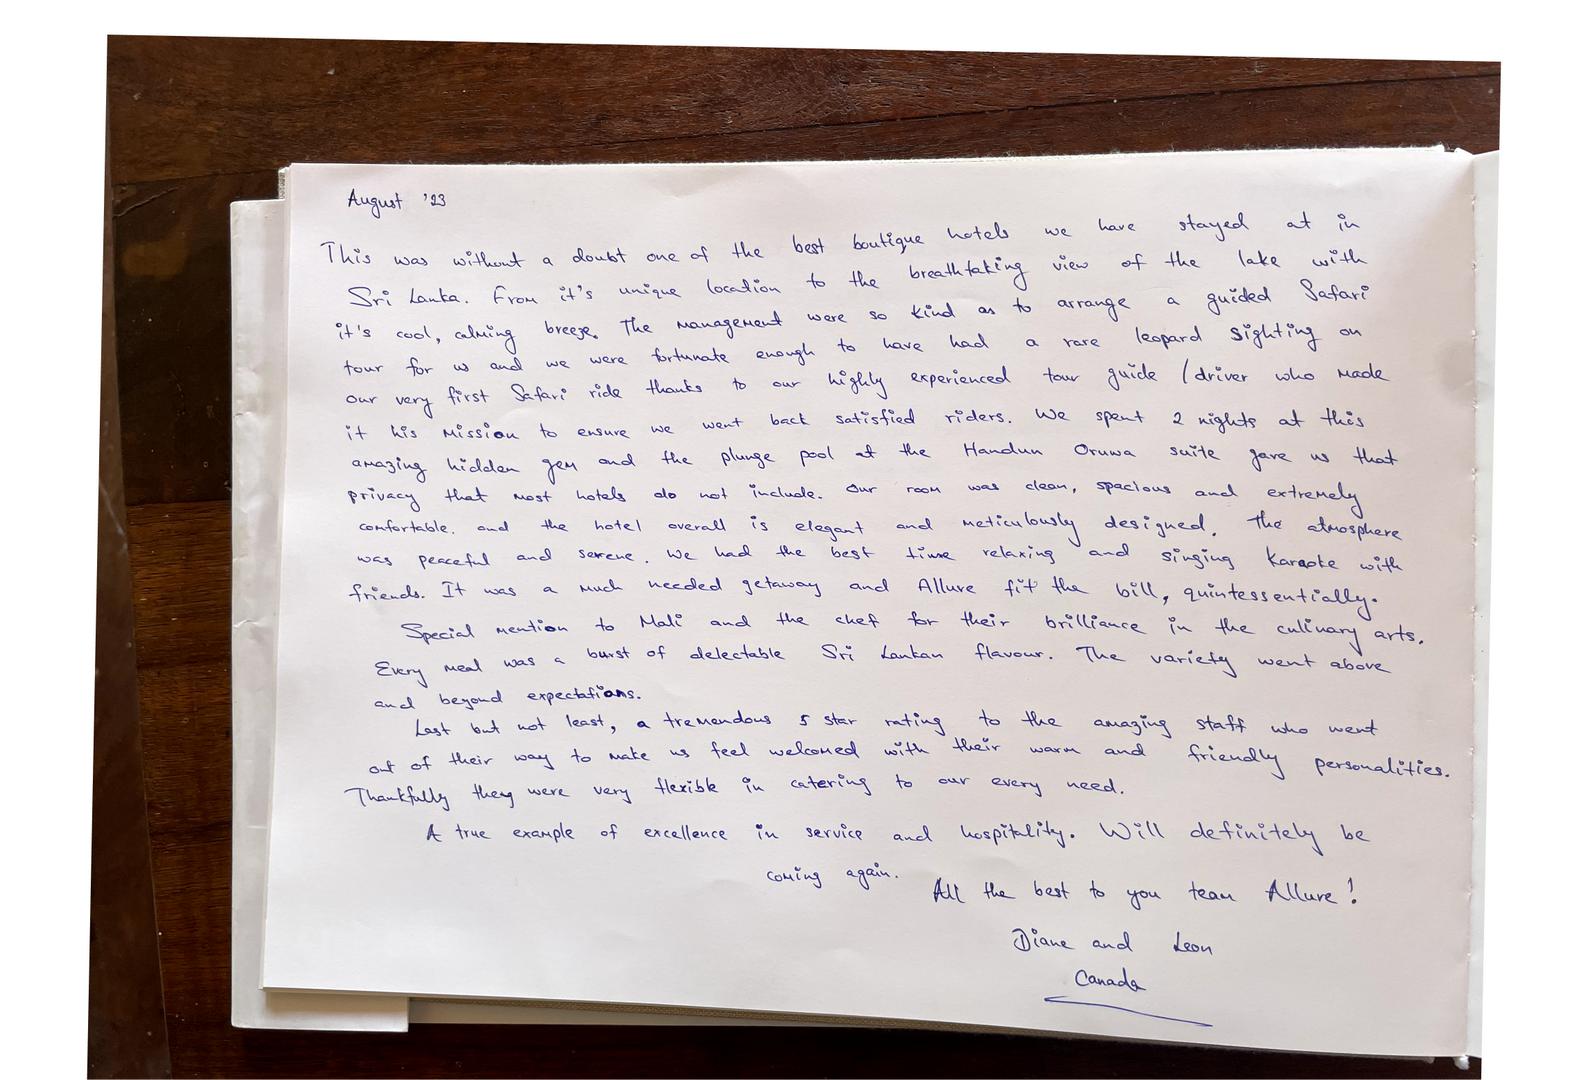 August '23
This was without a doubt one of the best boutique hotels we have stayed at in
Sri Lanka. From it's unique location to the breathtaking view of the lake with
it's cool, calming breeze. The management were so kind as to arrange a guided Safari
tour for us and we were fortunate enough to have had a rare leopard sighting on
our very first Safari ride thanks to our highly experienced tour guide / driver who made
it his mission to ensure we went back satisfied riders. We spent 2 nights at this
amazing hidden gem and the plunge pool at the Handun Oruwa suite gave us that
privacy that most hotels do not include. Our room was clean, spacious and extremely
comfortable. and the hotel overall is elegant and meticulously designed. The atmosphere
was peaceful and serene. We had the best time relaxing and singing karaoke with
friends. It was a much needed getaway and Allure fit the bill, quintessentially.
Special mention to Mali and the chef for their brilliance in the culinary arts.
Every meal was a burst of delectable Sri Lankan flavour. The variety went above
and beyond expectations.
Last but not least, a tremendous 5 star rating to the amazing staff who went
out of their way to make us feel welcomed with their warm and friendly personalities.
Thankfully they were very flexible in catering to our every need.
A true example of excellence in service and hospitality. Will definitely be
coming again.
All the best to you team Allure!
Diane and Leon
Canada